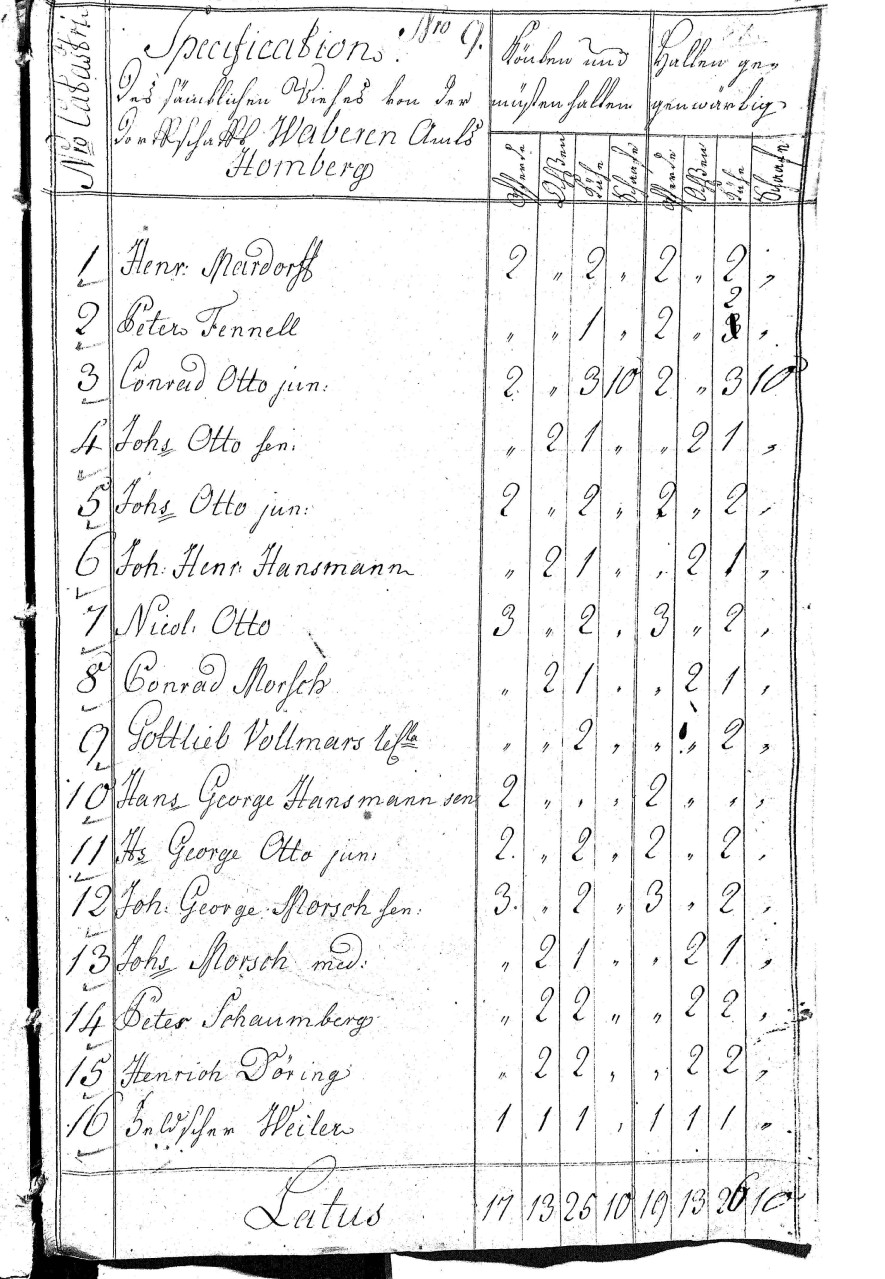 Nro Catastri
Specification Nro 9.
des sämtlichen Viehes von der
Dorffschafft Waberen Amts
Homberg
Können und
müsten halten
Halten ge-
genwärtig
Pferde Ochßen Kühe Schaafe Pferde Ochßen Kühe Schaafe
1 Henr: Mardorff 2 " 2 " 2 " 2 "
2 Peter Fennell " " 1 " 2 " 2 "
3 Conrad Otto jun: 2 " 3 10 2 " 3 10
4 Johs Otto sen: " 2 1 " " 2 1 "
5 Johs Otto jun: 2 " 2 " 2 " 2 "
6 Joh: Henr: Hansmann " 2 1 " " 2 1 "
7 Nicol: Otto 3 " 2 " 3 " 2 "
8 Conrad Morsch " 2 1 " " 2 1 "
9 Gottlieb Vollmars " " 2 " " " 2 "
10 Hans George Hansmann sen 2 " " " 2 " " "
11 Hs George Otto jun: 2 " 2 " 2 " 2 "
12 Joh: George Morsch sen: 3 " 2 " 3 " 2 "
13 Johs Morsch med: " 2 1 " " 2 1 "
14 Peter Schaumberg " 2 2 " " 2 2 "
15 Henrich Döring " 2 2 " " 2 2 "
16 Feldscher Weiler 1 1 1 " 1 1 1 "
Latus 17 13 25 10 19 13 26 10